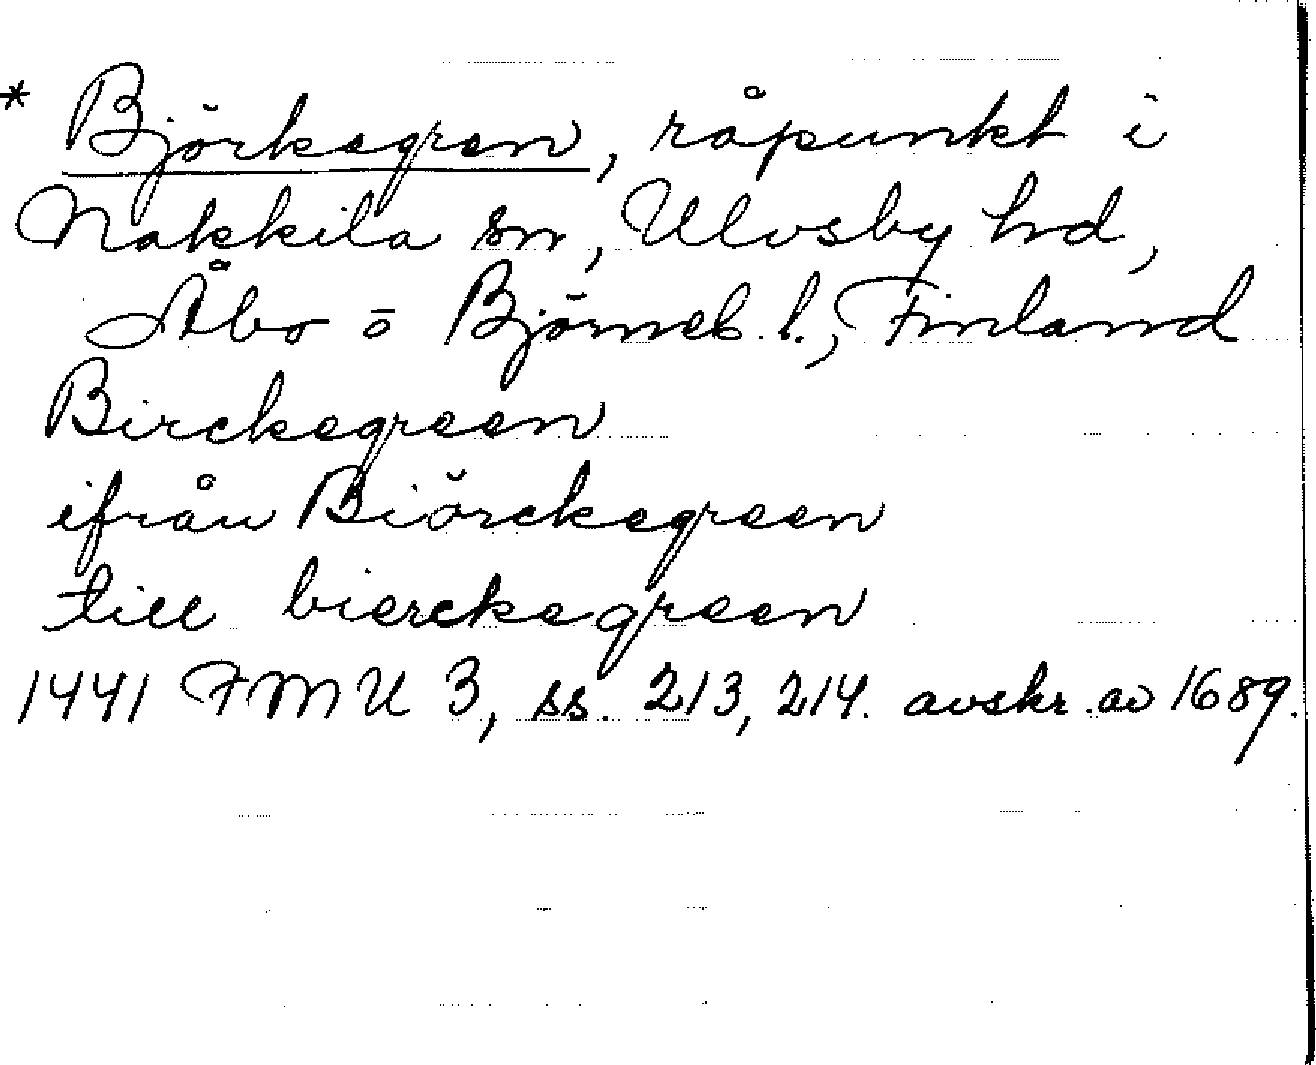 * Björkegren, råpunkt i
Nakkila sn, Ulvsby hd,
Åbo o Björneb. l., Finland
Birckegreen
ifrån Biörckegreen
till bierckegreen
1441 FMU 3, ss. 213, 214. avskr. av 1689.